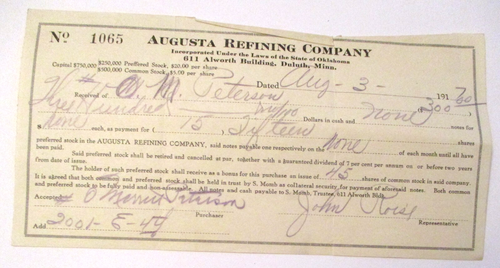 No 1065 AUGUSTA REFINING COMPANY
Incorporated Under the Laws of the State of Oklahoma
Capital $750,000 $250,000 Preffered Stock, $20.00 per share
$500,000 Common Stock, $1.00 per share
611 Alworth Building, Duluth, Minn.
Dated Aug - 3 - 191
Received of Peterson $300
Three Hundred no/100 Dollars in cash and None notes for
None each, as payment for 15 Fifteen shares
preferred stock in the AUGUSTA REFINING COMPANY, said notes payable one respectively on the None of each month until all have
been paid.
Said preferred stock shall be retired and cancelled at par, together with a guaranteed dividend of 7 per cent per annum on or before two years
from date of issue.
The holder of such preferred stock shall receive as a bonus for this purchase on issue of 45 shares of common stock in said company.
It is agreed that both common and preferred stock shall be held in trust by S. Mumb as collateral security for payment of aforesaid notes. Both common
and preferred stock to be fully paid and non-assessable. All notes and cash payable to S. Mumb, Trustee, 611 Alworth Bldg.
Accepted O Merritt Peterson
Purchaser
John Representative
Add 2001- E- 4th